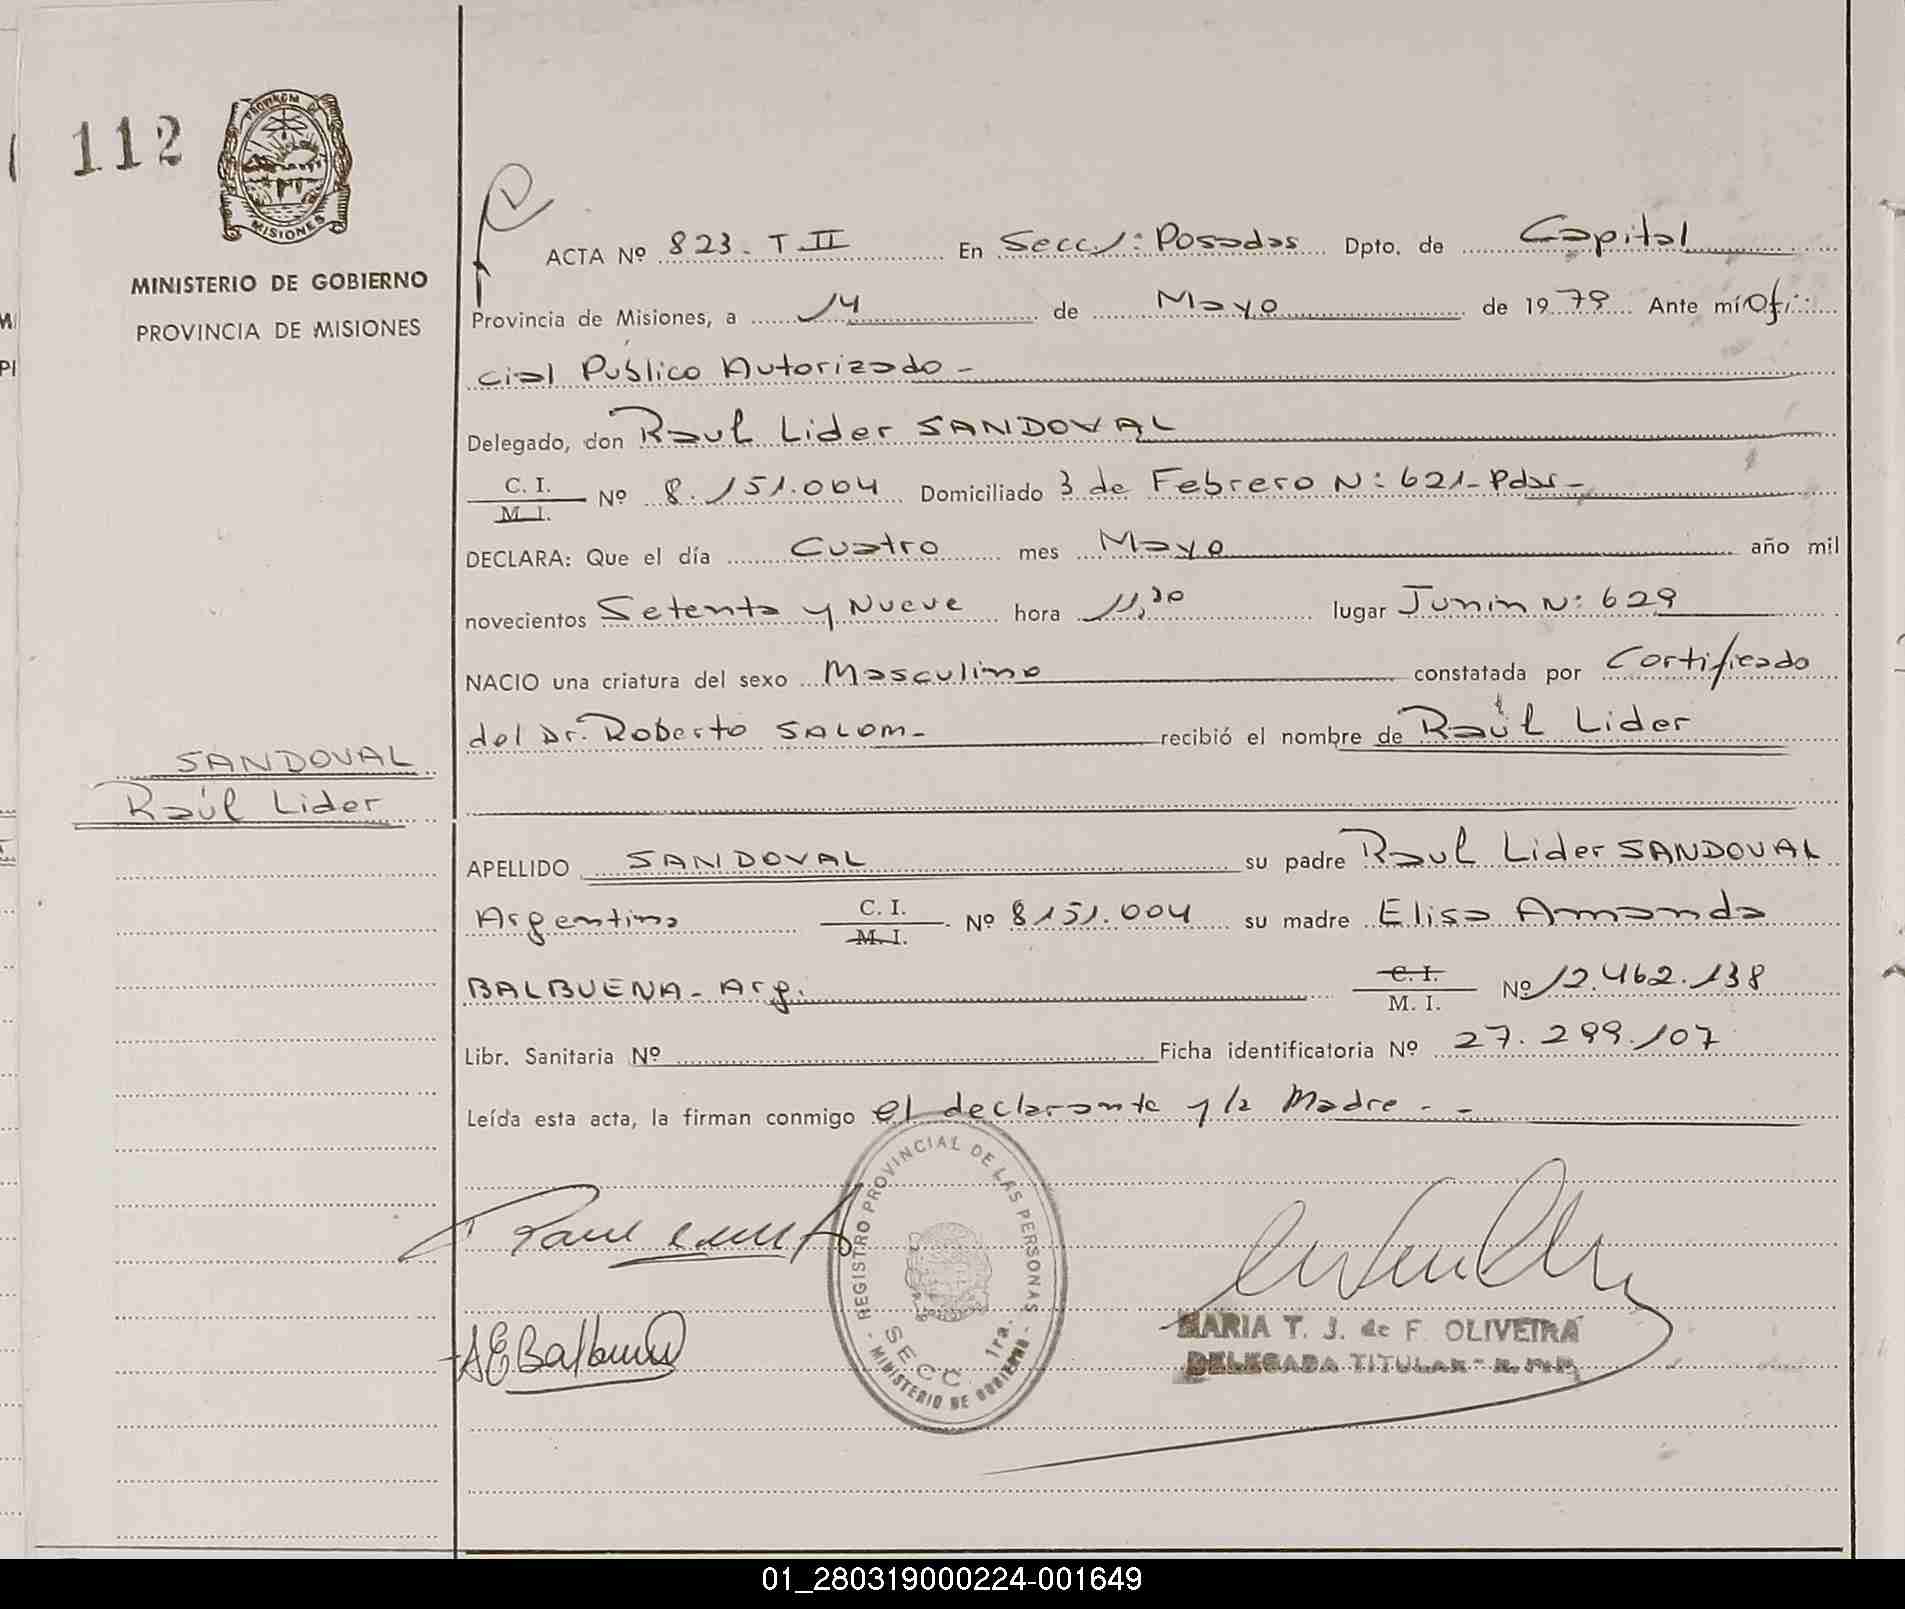 112
PROVINCIA DE
MISIONES
MINISTERIO DE GOBIERNO
PROVINCIA DE MISIONES
ACTA Nº 823 - T II En Secc/: Posadas Dpto. de Capital
Provincia de Misiones, a 14 de Mayo de 1979 Ante mí Ofi
cial Público Autorizado -
Delegado, don Raul Lider SANDOVAL
C. I.
M. I. Nº 8.151.004 Domiciliado 3 de Febrero N: 621 - Pdas -
DECLARA: Que el día Cuatro mes Mayo año mil
novecientos Setenta y Nueve hora 11,30 lugar Junin N: 629
NACIO una criatura del sexo Masculino constatada por Certificado
del Dr. Roberto SALOM - recibió el nombre de Raúl Lider
SANDOVAL
Raúl Lider
APELLIDO SANDOVAL su padre Raul Lider SANDOVAL
Argentino C. I. M. I. Nº 8151.004 su madre Elisa Amanda
BALBUENA - Arg. C. I. M. I. Nº 12.462.138
Libr. Sanitaria Nº Ficha identificatoria Nº 27.299.107
Leída esta acta, la firman conmigo el declarante y la Madre - -
REGISTRO PROVINCIAL DE LAS PERSONAS
SECC. 1ra.
- MINISTERIO DE GOBIERNO -
MARIA T. J. de F. OLIVEIRA
DELEGADA TITULAR - R. P. P.
AE Balbuena
01_280319000224-001649